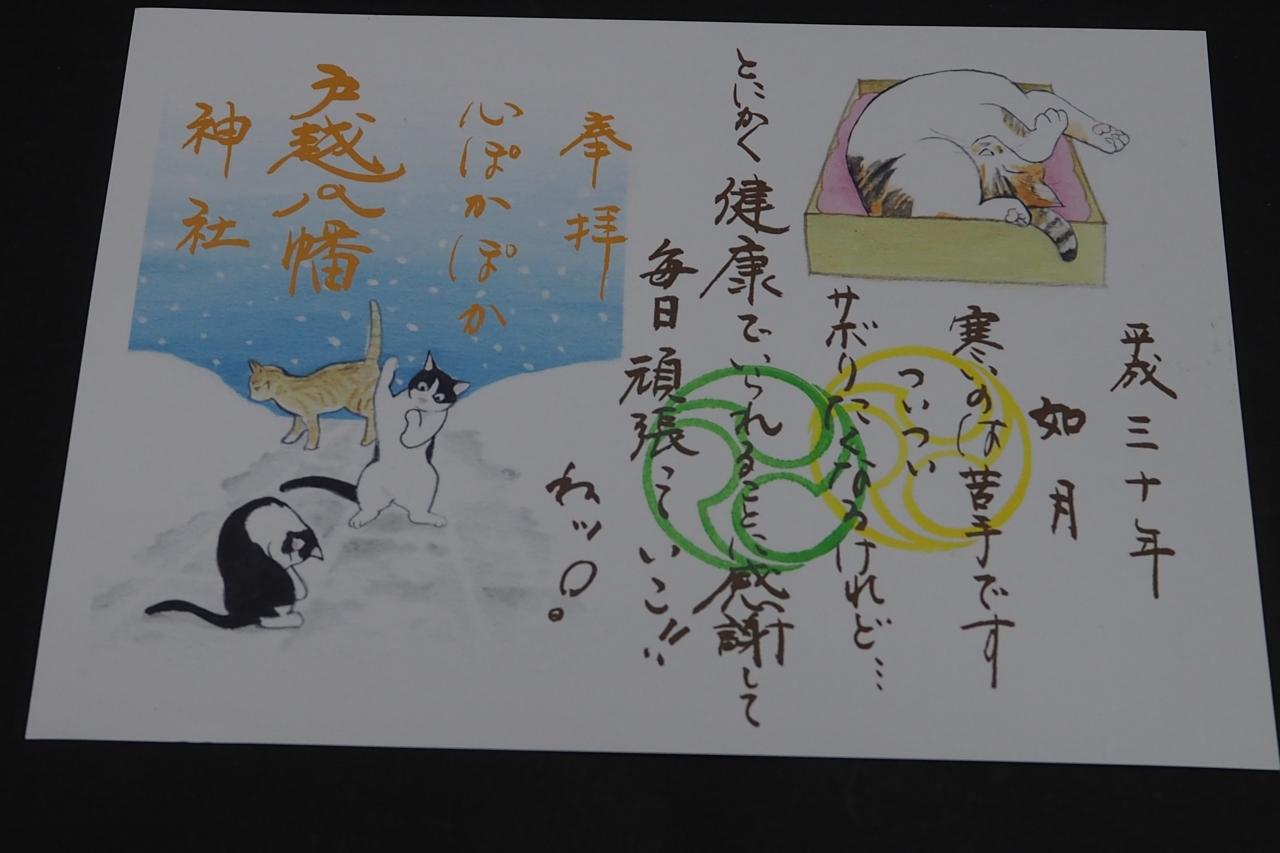 平成三十年
如月
寒いのは苦手です
ついつい
サボりたくなるけれど…
とにかく健康でいられることに感謝して
毎日頑張っていこ!!
ねッ○。
奉拝
心ぽかぽか
戸越八幡
神社